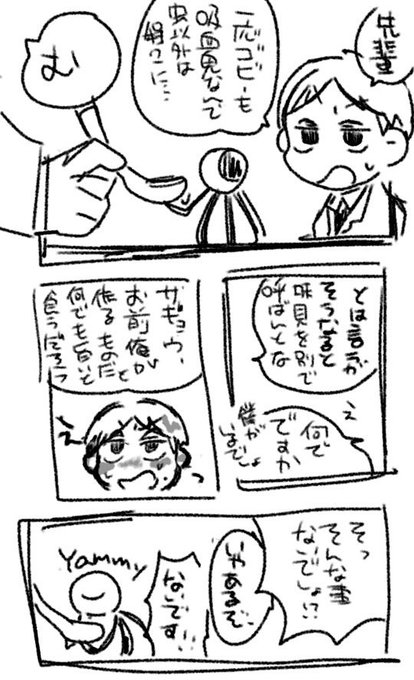 先輩
一応ゴビーも
吸血鬼なんで
虫以外は
む
とは言うが
そうなると
味見を別で
呼ばんとな
え
何で
ですか
僕が
いるでしょ
サギョウ、
お前俺が
作るものだと
何でも旨いと
食うだろう
え
そっ
そんな事
ないでしょ!?
いやあるぞ
ないです
Yammy